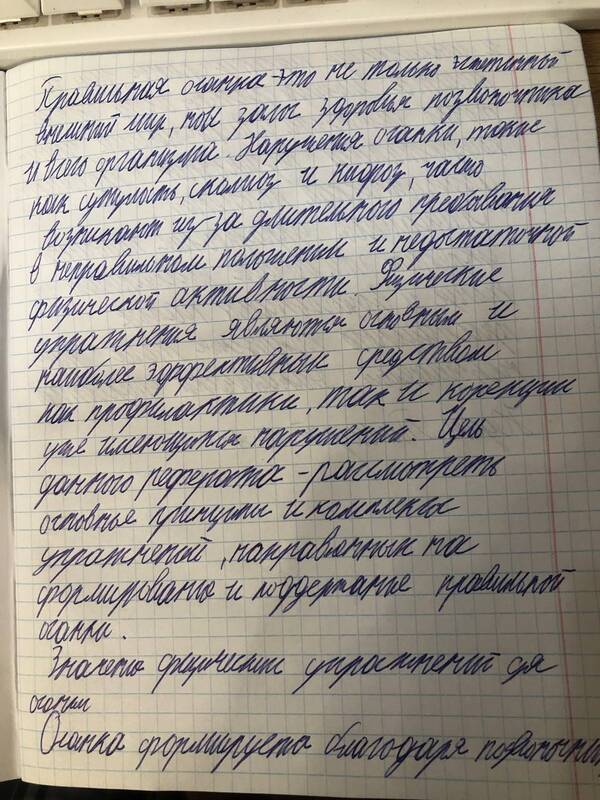 Правильная осанка это не только эстетичный
внешний мир, но и залог здоровья позвоночника
и всего организма. Нарушения осанки, такие
как сутулость, сколиоз и кифоз, часто
возникают из-за длительного пребывания
в неправильном положении и недостаточной
физической активности. Физические
упражнения являются основным и
наиболее эффективным средством
как профилактики, так и коррекции
уже имеющихся нарушений. Цель
данного реферата - рассмотреть
основные принципы и комплексы
упражнений, направленных на
формирование и поддержание правильной
осанки.
Значение физических упражнений для
осанки
Осанка формируется благодаря